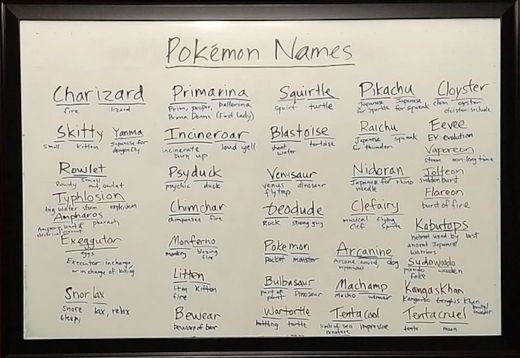 Pokémon Names
Charizard
fire lizard
Skitty Yanma
small kitten Japanese for dragonfly
Rowlet
Rowdy small owl, owlet
Typhlosion
explosion
Ampharos
pharaoh
Exeggutor
eggs
Executor: incharge
or in charge of killing
Snorlax
snore lax, relax
sleepy
Primarina
Prim, proper, ballerina
Prima Donna (first lady)
Incineroar
incinerate loud yell
burn up
Psyduck
psychic duck
Chimchar
chimpanzee fire
Monferno
monkey fire
Litten
kitten
fire
Bewear
beware of bear
Squirtle
squirt turtle
Blastoise
shoot tortoise
water
Venusaur
venus dinosaur
flytrap
Geodude
Rock strong guy
Pokemon
pocket monster
Bulbasaur
part of plant Dinosaur
Wartortle
turtle
Pikachu
Japanese Japanese
for sparkle for squeak
Raichu
Japanese squeak
for thunder
Nidoran
Japanese for rhino
needle
Clefairy
musical flying
Clef Sprite
Arcanine
Arcane canine dog
Machamp
Macho winner
Tentacool
impressive
creature
Cloyster
clam oyster
Eevee
EV evolution
Vaporeon
steam eon: long time
Jolteon
sudden burst
Flareon
burst of fire
Kabutops
helmet used by best
ancient Japanese
warriors
Sudowoodo
pseudo wooden
fake
Kangaskhan
Kangaroo Genghis Khan
Tentacruel
tenta mean